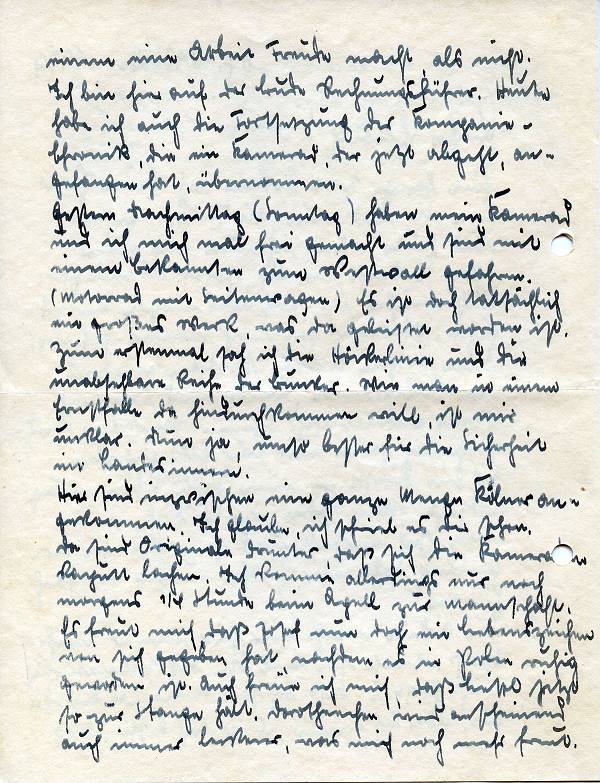 einem eine Arbeit Freude macht, als nicht.
Ich bin hier auf der Bude Rechnungsführer. Heute
habe ich auch die Fortsetzung der Kompanie-
chronik, die ein Kamerad, der jetzt abgeht, an-
gefangen hat, übernommen.
Gestern Nachmittag (Sonntag) haben mein Kamerad
und ich mich mal frei gemacht und sind mit
einem Bekannten zum Westwall gefahren.
(Motorrad mit Seitenwagen) Es ist doch tatsächlich
ein großes Werk, was da geleistet worden ist.
Zum erstenmal sah ich die Höckerlinie und die
unabsehbare Reihe der Bunker. Wie man in einem
Ernstfalle da hindurchkommen will, ist mir
unklar. Nun ja, umso besser für die Sicherheit
im Landesinnern.
Hier sind inzwischen eine ganze Menge Kölner an-
gekommen. Ich glaube, ich schrieb es Dir schon.
Da sind Originale drunter, daß sich die Kameraden
kaputt lachen. Ich komme allerdings nur noch
morgens 1/4 Stunde beim Apell zur Mannschaft.
Es freut mich, daß Josef nun doch ein Lebenszeichen
von sich gegeben hat, nachdem es in Polen ruhig
geworden ist. Auch freue ich mich, daß jetzt
so zur Stange hält. Dorotheechen wird anscheinend
auch immer, was mich noch mehr freut.